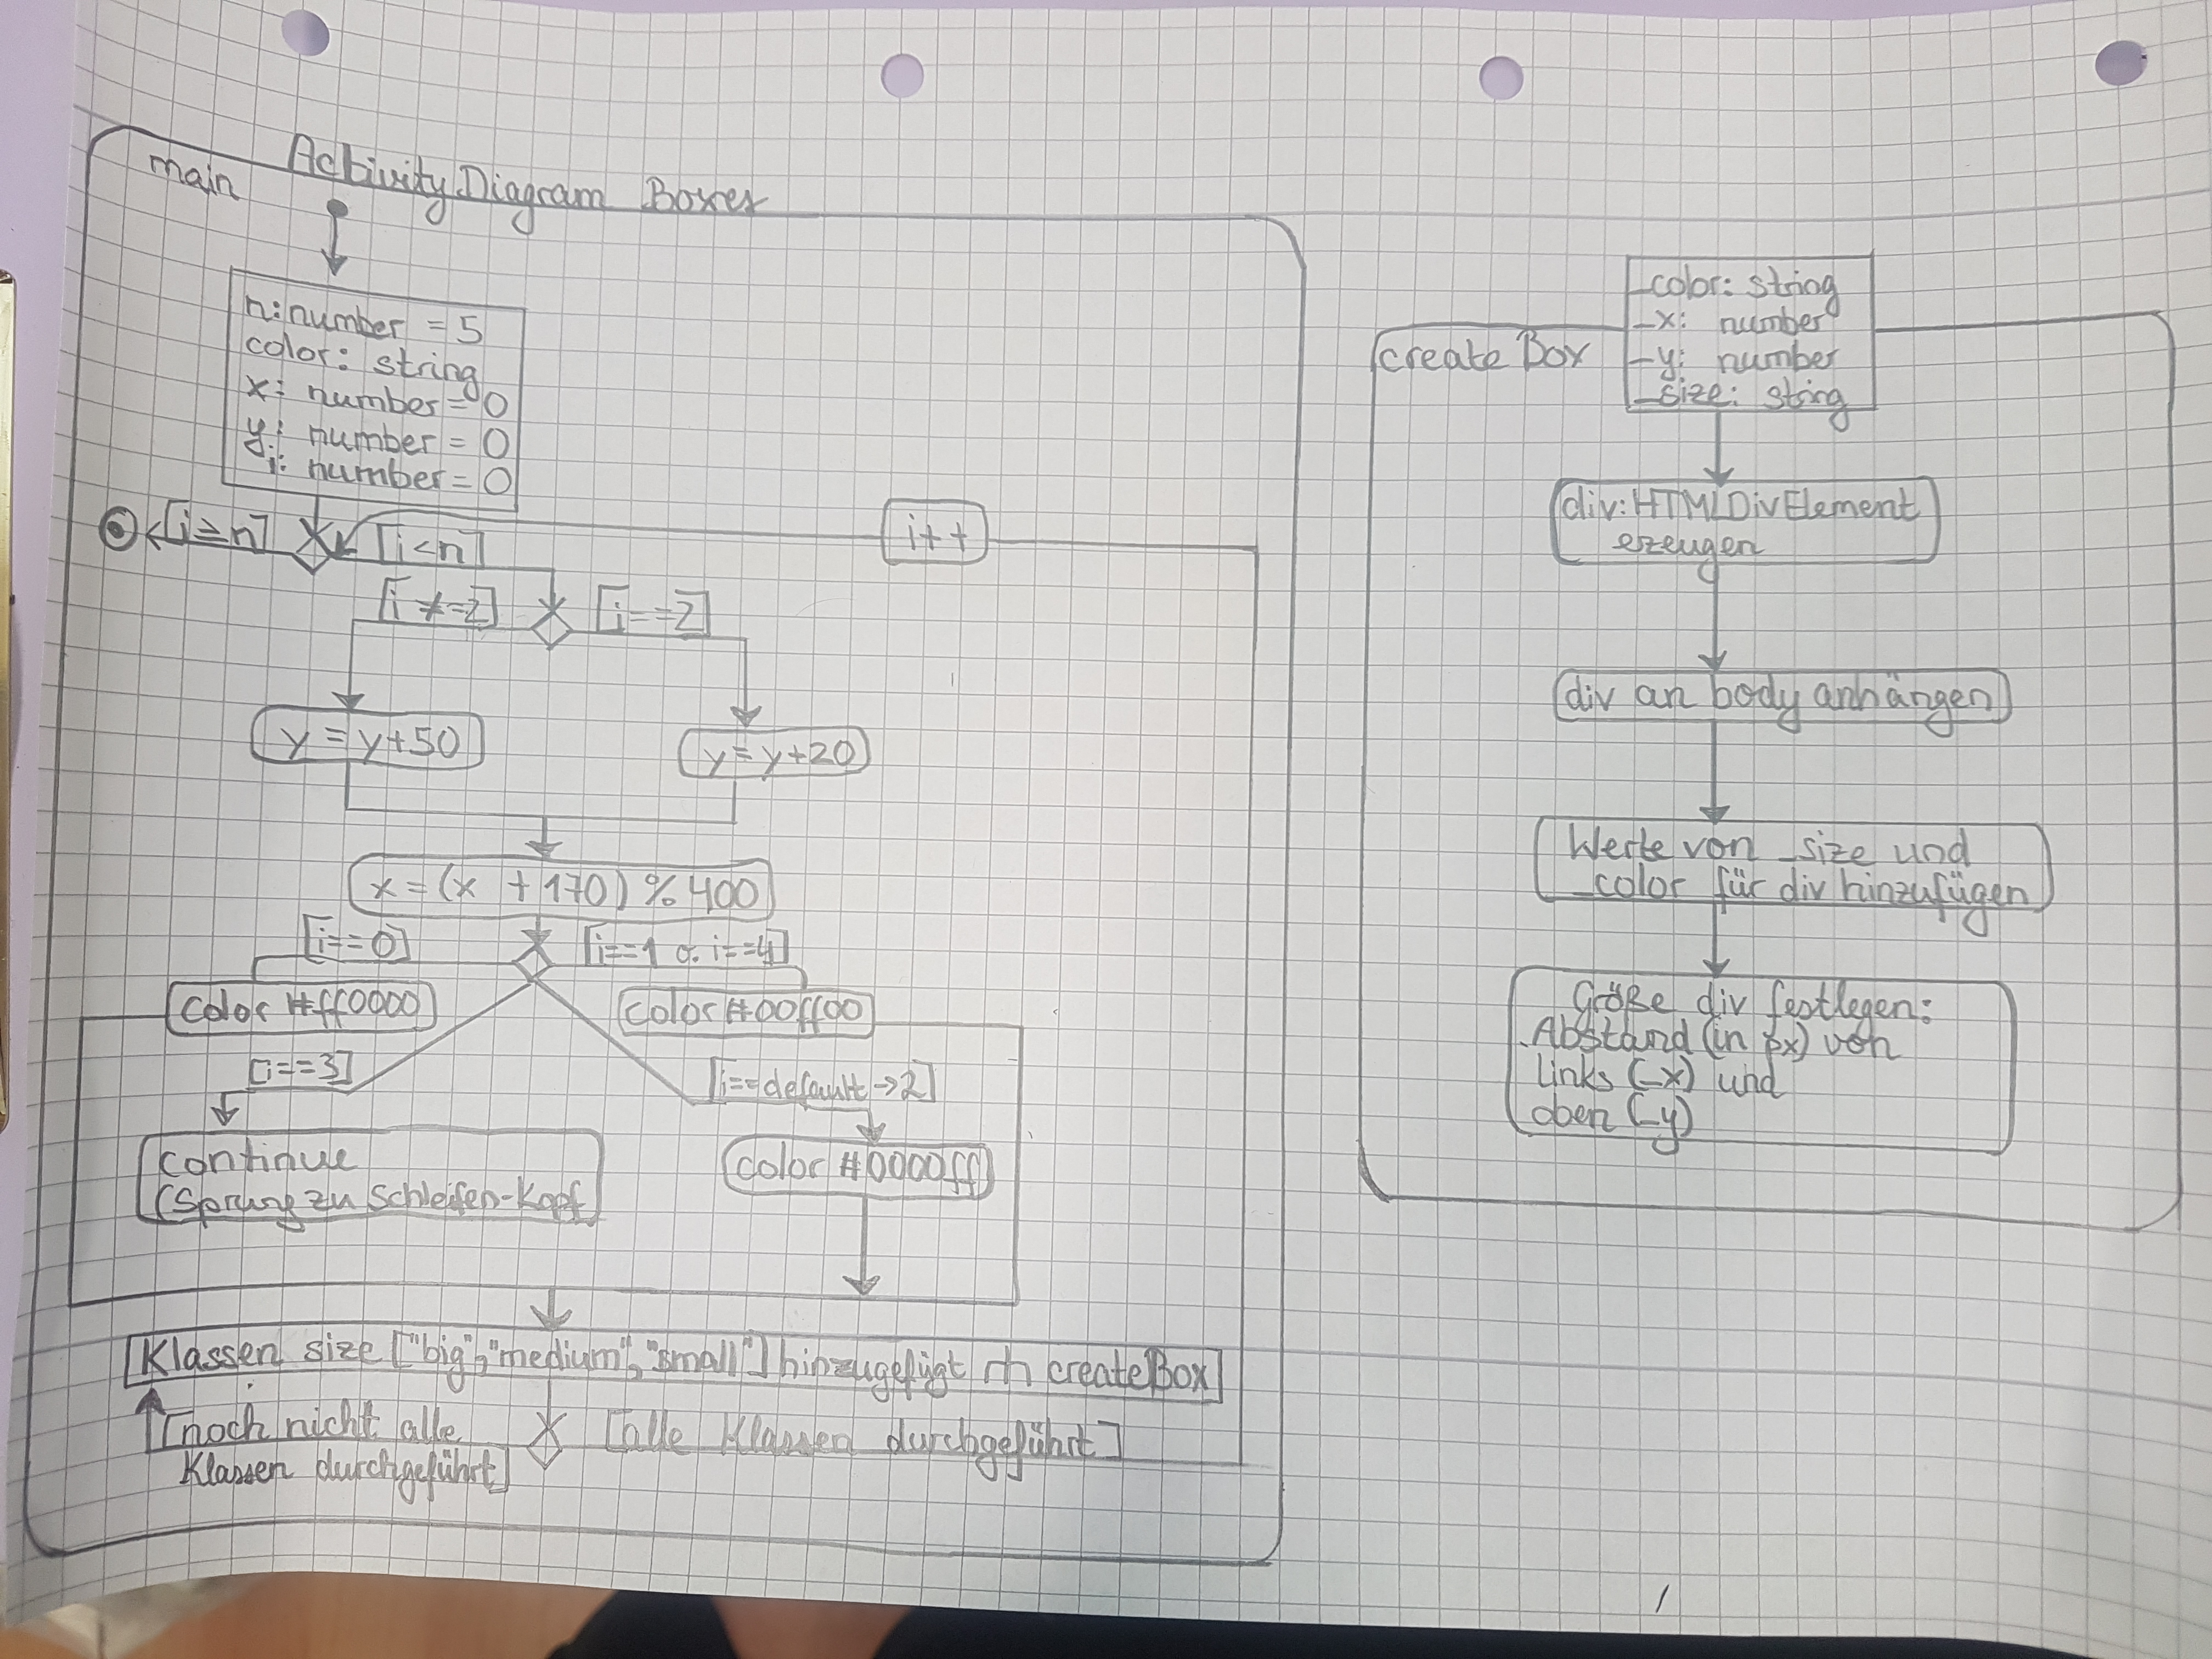 Activity Diagram Boxes
main
n: number = 5
color: string
x: number = 0
y: number = 0
i: number = 0
[i ≥ n]
[i < n]
i++
[i ≠ =2]
[i == 2]
y = y+50
y = y+20
x = (x + 170) % 400
[i == 0]
[i==1 o. i==4]
color #ff0000
color #00ff00
[i==3]
[i==default->2]
continue
(Sprung zu Schleifen-Kopf)
color #0000ff
Klassen size ["big", "medium", "small"] hinzugefügt createBox
[noch nicht alle
Klassen durchgeführt]
[alle Klassen durchgeführt]
createBox
_color: string
_x: number
_y: number
_size: string
div: HTMLDivElement
erzeugen
div an body anhängen
Werte von _size und
_color für div hinzufügen
Größe div festlegen:
Abstand (in px) von
links (_x) und
oben (_y)